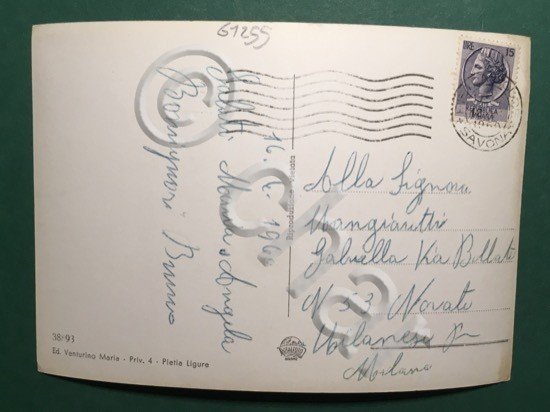 61255
16.6.1960
Saluti Maria e Angela
Bruno
Riproduzione vietata
Alla Signora
Mangiarotti
Gabriella Via Bellati
N 53 Novate
Milanese
Milano
LIRE 15
SAVONA
38/93
Ed. Venturino Maria - Priv. 4 - Pietra Ligure